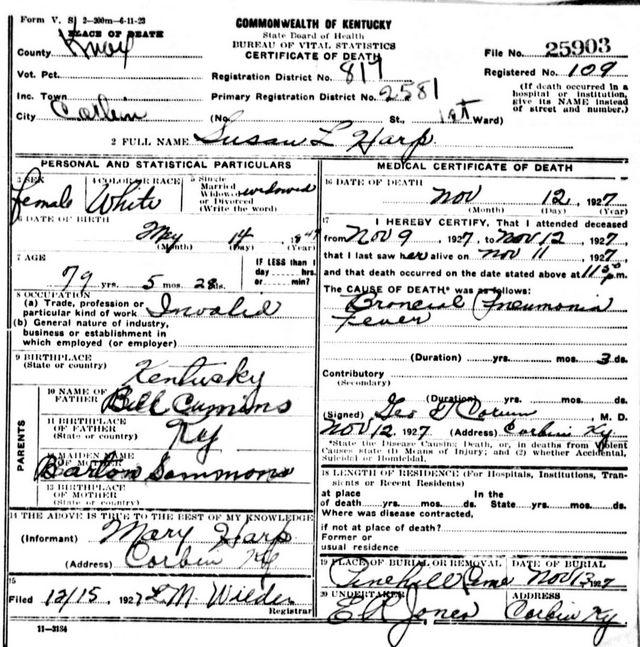 Form V. S. 2-200m-6-11-23
PLACE OF DEATH
County Knox
Vot. Pct.
Inc. Town
City Corbin
COMMONWEALTH OF KENTUCKY
State Board of Health
BUREAU OF VITAL STATISTICS
CERTIFICATE OF DEATH
Registration District No. 817
Primary Registration District No. 2581
(No. St., 1st Ward)
File No. 25903
Registered No. 109
(If death occurred in a
hospital or institution,
give its NAME instead
of street and number.)
2 FULL NAME Susan L Harp
PERSONAL AND STATISTICAL PARTICULARS
3 SEX Female
4 COLOR OR RACE White
5 Single
Married
Widowed
or Divorced
(Write the word) widowed
6 DATE OF BIRTH
May 14, 1847
(Month) (Day) (Year)
7 AGE
79 yrs. 5 mos. 28 ds.
IF LESS than 1
day hrs.
or min?
8 OCCUPATION
(a) Trade, profession or
particular kind of work Invalid
(b) General nature of industry,
business or establishment in
which employed (or employer)
9 BIRTHPLACE
(State or country) Kentusky
PARENTS
10 NAME OF
FATHER Bill Cumins
11 BIRTHPLACE
OF FATHER
(State or country) Ky
12 MAIDEN NAME
OF MOTHER
Barton Sammons
13 BIRTHPLACE
OF MOTHER
(State or country)
14 THE ABOVE IS TRUE TO THE BEST OF MY KNOWLEDGE
(Informant) Mary Harp
(Address) Corbin Ky
15
Filed 12/15, 1927 L. M. Wilder
Registrar
11-3184
MEDICAL CERTIFICATE OF DEATH
16 DATE OF DEATH
Nov 12, 1927
(Month) (Day) (Year)
17
I HEREBY CERTIFY, That I attended deceased
from Nov 9, 1927, to Nov 12, 1927,
that I last saw her alive on Nov 11, 1927,
and that death occurred on the date stated above at m.
The CAUSE OF DEATH* was as follows:
Broncial Pneumonia
Fever
(Duration) yrs. mos. 3 ds.
Contributory
(Secondary)
(Duration) yrs. mos. ds.
(Signed) Geo M. D.
Nov 12, 1927 (Address) Corbin Ky
*State the Disease Causing Death, or, in deaths from Violent
Causes state (1) Means of Injury; and (2) whether Accidental,
Suicidal or Homicidal.
18 LENGTH OF RESIDENCE (For Hospitals, Institutions, Tran-
sients or Recent Residents)
at place In the
of death yrs. mos. ds. State yrs. mos. ds.
Where was disease contracted,
if not at place of death?
Former or
usual residence
19 PLACE OF BURIAL OR REMOVAL
Pinehill Ceme
DATE OF BURIAL
Nov 13, 1927
20 UNDERTAKER
E R Jones
ADDRESS
Corbin Ky